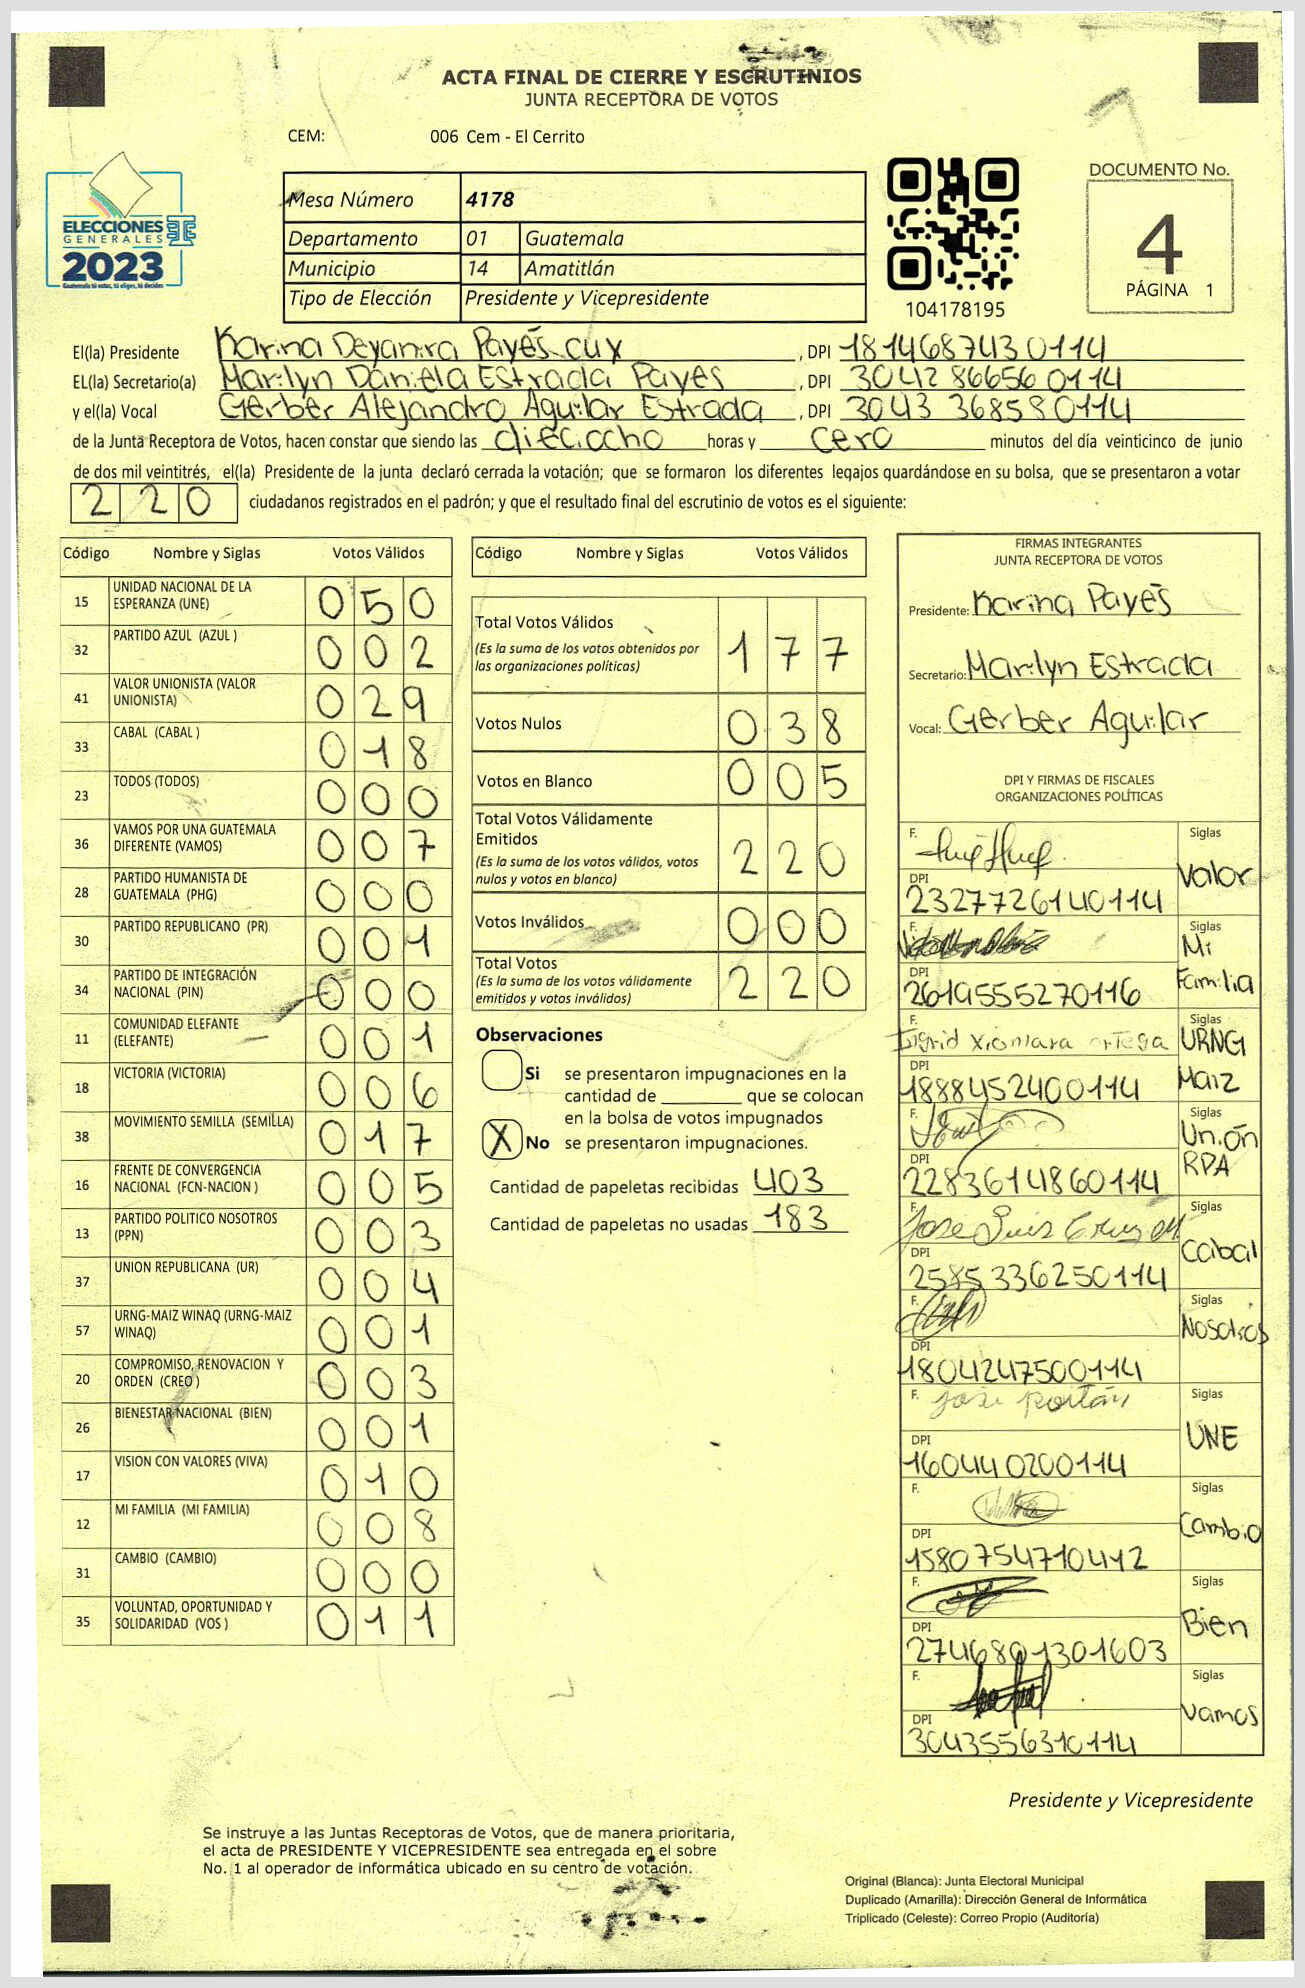 ACTA FINAL DE CIERRE Y ESCRUTINIOS
JUNTA RECEPTORA DE VOTOS
CEM: 006 Cem - El Cerrito
ELECCIONES
GENERALES
2023
Guatemala tú votas, tú eliges, tú decides
Mesa Número 4178
Departamento 01 Guatemala
Municipio 14 Amatitlán
Tipo de Elección Presidente y Vicepresidente
104178195
DOCUMENTO No.
4
PÁGINA 1
El(la) Presidente Karina Deyanira Payés cux , DPI 1814687430114
EL(la) Secretario(a) Marilyn Daniela Estrada Payes , DPI 3042866560114
y el(la) Vocal Gerber Alejandro Aguilar Estrada , DPI 3043368580114
de la Junta Receptora de Votos, hacen constar que siendo las dieciocho horas y cero minutos del día veinticinco de junio
de dos mil veintitrés, el(la) Presidente de la junta declaró cerrada la votación; que se formaron los diferentes legajos guardándose en su bolsa, que se presentaron a votar
220 ciudadanos registrados en el padrón; y que el resultado final del escrutinio de votos es el siguiente:
Código Nombre y Siglas Votos Válidos
15 UNIDAD NACIONAL DE LA ESPERANZA (UNE) 050
32 PARTIDO AZUL (AZUL ) 002
41 VALOR UNIONISTA (VALOR UNIONISTA) 029
33 CABAL (CABAL ) 018
23 TODOS (TODOS) 000
36 VAMOS POR UNA GUATEMALA DIFERENTE (VAMOS) 007
28 PARTIDO HUMANISTA DE GUATEMALA (PHG) 000
30 PARTIDO REPUBLICANO (PR) 001
34 PARTIDO DE INTEGRACIÓN NACIONAL (PIN) 000
11 COMUNIDAD ELEFANTE (ELEFANTE) 001
18 VICTORIA (VICTORIA) 006
38 MOVIMIENTO SEMILLA (SEMILLA) 017
16 FRENTE DE CONVERGENCIA NACIONAL (FCN-NACION ) 005
13 PARTIDO POLITICO NOSOTROS (PPN) 003
37 UNION REPUBLICANA (UR) 004
57 URNG-MAIZ WINAQ (URNG-MAIZ WINAQ) 001
20 COMPROMISO, RENOVACION Y ORDEN (CREO ) 003
26 BIENESTAR NACIONAL (BIEN) 001
17 VISION CON VALORES (VIVA) 010
12 MI FAMILIA (MI FAMILIA) 008
31 CAMBIO (CAMBIO) 000
35 VOLUNTAD, OPORTUNIDAD Y SOLIDARIDAD (VOS ) 011
Código Nombre y Siglas Votos Válidos
Total Votos Válidos 177
(Es la suma de los votos obtenidos por
las organizaciones políticas)
Votos Nulos 038
Votos en Blanco 005
Total Votos Válidamente
Emitidos 220
(Es la suma de los votos válidos, votos
nulos y votos en blanco)
Votos Inválidos 000
Total Votos 220
(Es la suma de los votos válidamente
emitidos y votos inválidos)
Observaciones
Si se presentaron impugnaciones en la
cantidad de ________ que se colocan
en la bolsa de votos impugnados
X No se presentaron impugnaciones.
Cantidad de papeletas recibidas 403
Cantidad de papeletas no usadas 183
FIRMAS INTEGRANTES
JUNTA RECEPTORA DE VOTOS
Presidente: Karina Payés
Secretario: Marilyn Estrada
Vocal: Gerber Aguilar
DPI Y FIRMAS DE FISCALES
ORGANIZACIONES POLÍTICAS
F. Siglas
Valor
DPI
2327726140114
F. Siglas
Mi
Familia
DPI
2619555270116
F. Siglas
Ingrid Xiomara ortega URNG
Maiz
DPI
1888452400114
F. Siglas
Unión
RPA
DPI
2283614860114
F. Siglas
Jose Luis Cruz M
Cabal
DPI
2585336250114
F. Siglas
Nosotros
DPI
1804247500114
F. Siglas
Jose
UNE
DPI
1604402000114
F. Siglas
Cambio
DPI
1580754710412
F. Siglas
Bien
DPI
2746801301603
F. Siglas
Vamos
DPI
3043556310114
Presidente y Vicepresidente
Se instruye a las Juntas Receptoras de Votos, que de manera prioritaria,
el acta de PRESIDENTE Y VICEPRESIDENTE sea entregada en el sobre
No. 1 al operador de informática ubicado en su centro de votación.
Original (Blanca): Junta Electoral Municipal
Duplicado (Amarilla): Dirección General de Informática
Triplicado (Celeste): Correo Propio (Auditoría)